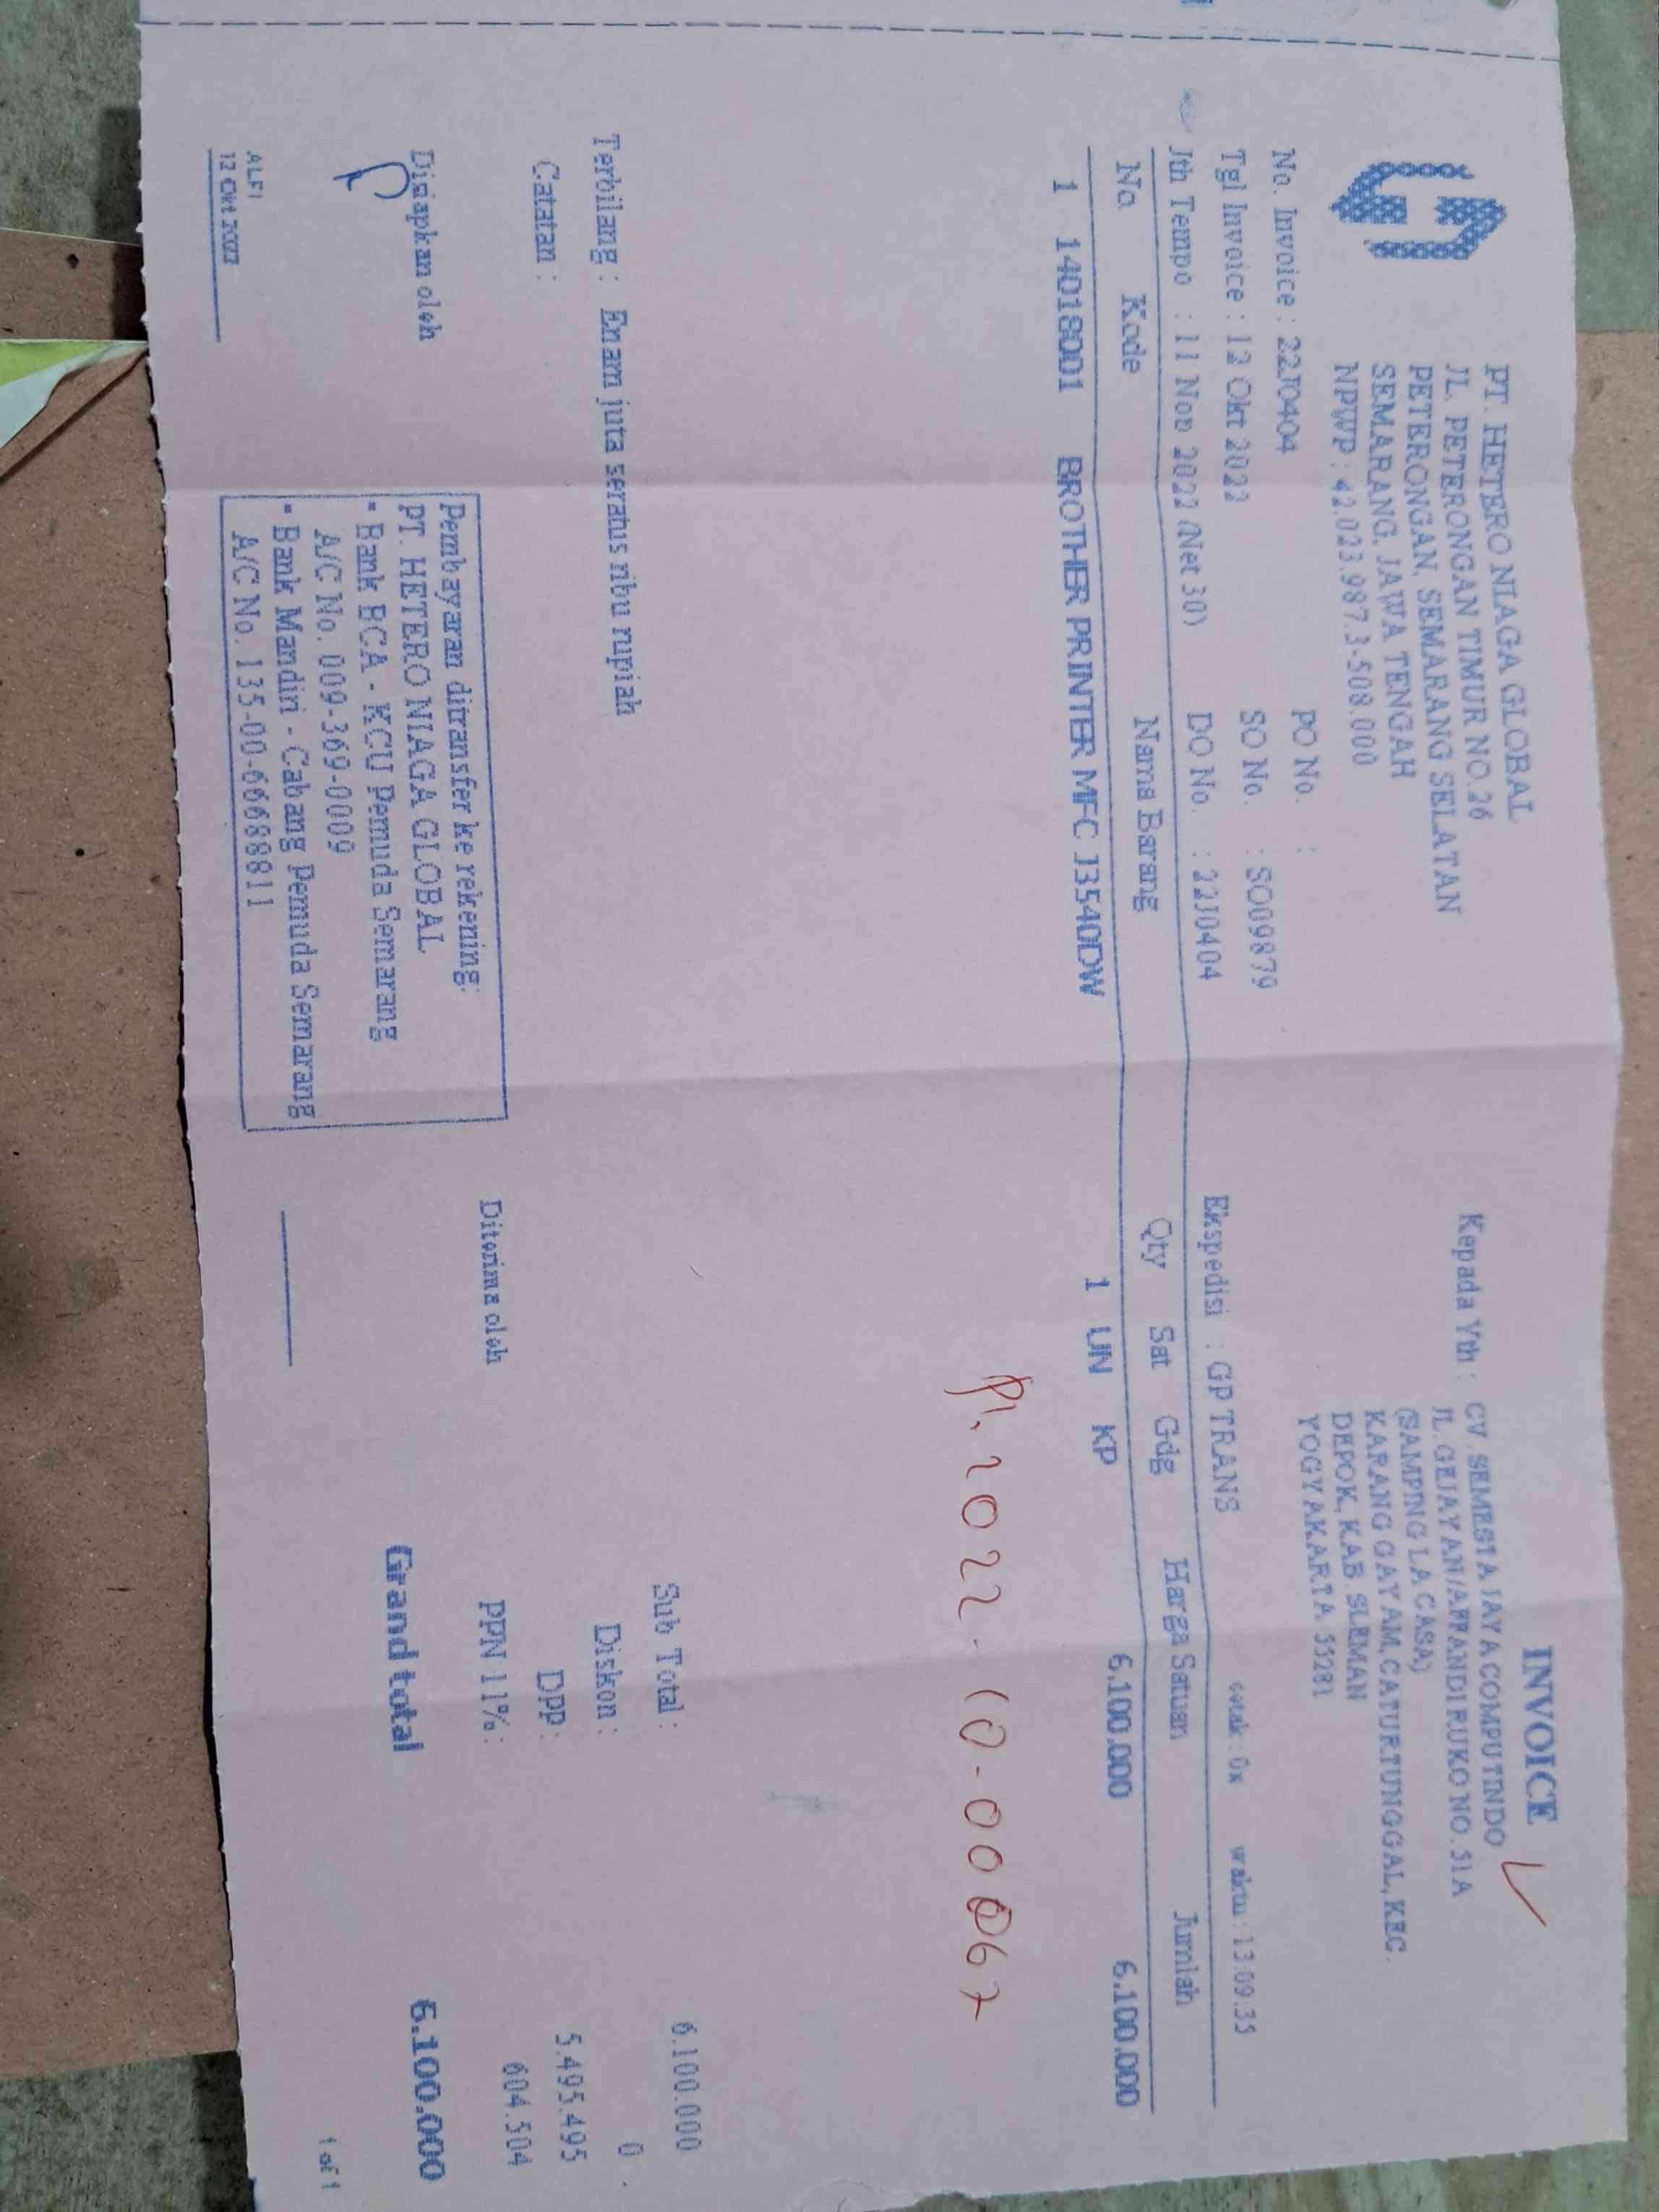 INVOICE
PT. HETERO NIAGA GLOBAL
JL. PETERONGAN TIMUR NO.26
PETERONGAN, SEMARANG SELATAN
SEMARANG, JAWA TENGAH
NPWP : 42.023.987.3-508.000
Kepada Yth : CV. SEMESTA JAYA COMPUTINDO
JL. GEJAYAN/AFFANDI RUKO NO. 51A
(SAMPING LA CASA)
KARANG GAYAM, CATURTUNGGAL, KEC.
DEPOK, KAB. SLEMAN
YOGYAKARTA 55281
No. Invoice : 22J0404
Tgl Invoice : 12 Okt 2022
Jth Tempo : 11 Nop 2022 (Net 30)
PO No. :
SO No. : SO09879
DO No. : 22J0404
Ekspedisi : GP TRANS
cetak : 0x waktu : 13:09:35
No. Kode Nama Barang Qty Sat Gdg Harga Satuan Jumlah
1 14018001 BROTHER PRINTER MFC J3540DW 1 UN KP 6.100.000 6.100.000
PI. 2022-10-00067
Terbilang : Enam juta seratus ribu rupiah
Catatan :
Sub Total : 6.100.000
Diskon : 0
DPP : 5.495.495
PPN 11% : 604.504
Grand total 6.100.000
Disiapkan oleh
ALFI
12 Okt 2022
Pembayaran ditransfer ke rekening:
PT. HETERO NIAGA GLOBAL
- Bank BCA - KCU Pemuda Semarang
A/C No. 009-369-0009
- Bank Mandiri - Cabang Pemuda Semarang
A/C No. 135-00-6668881 1
Diterima oleh
1 of 1